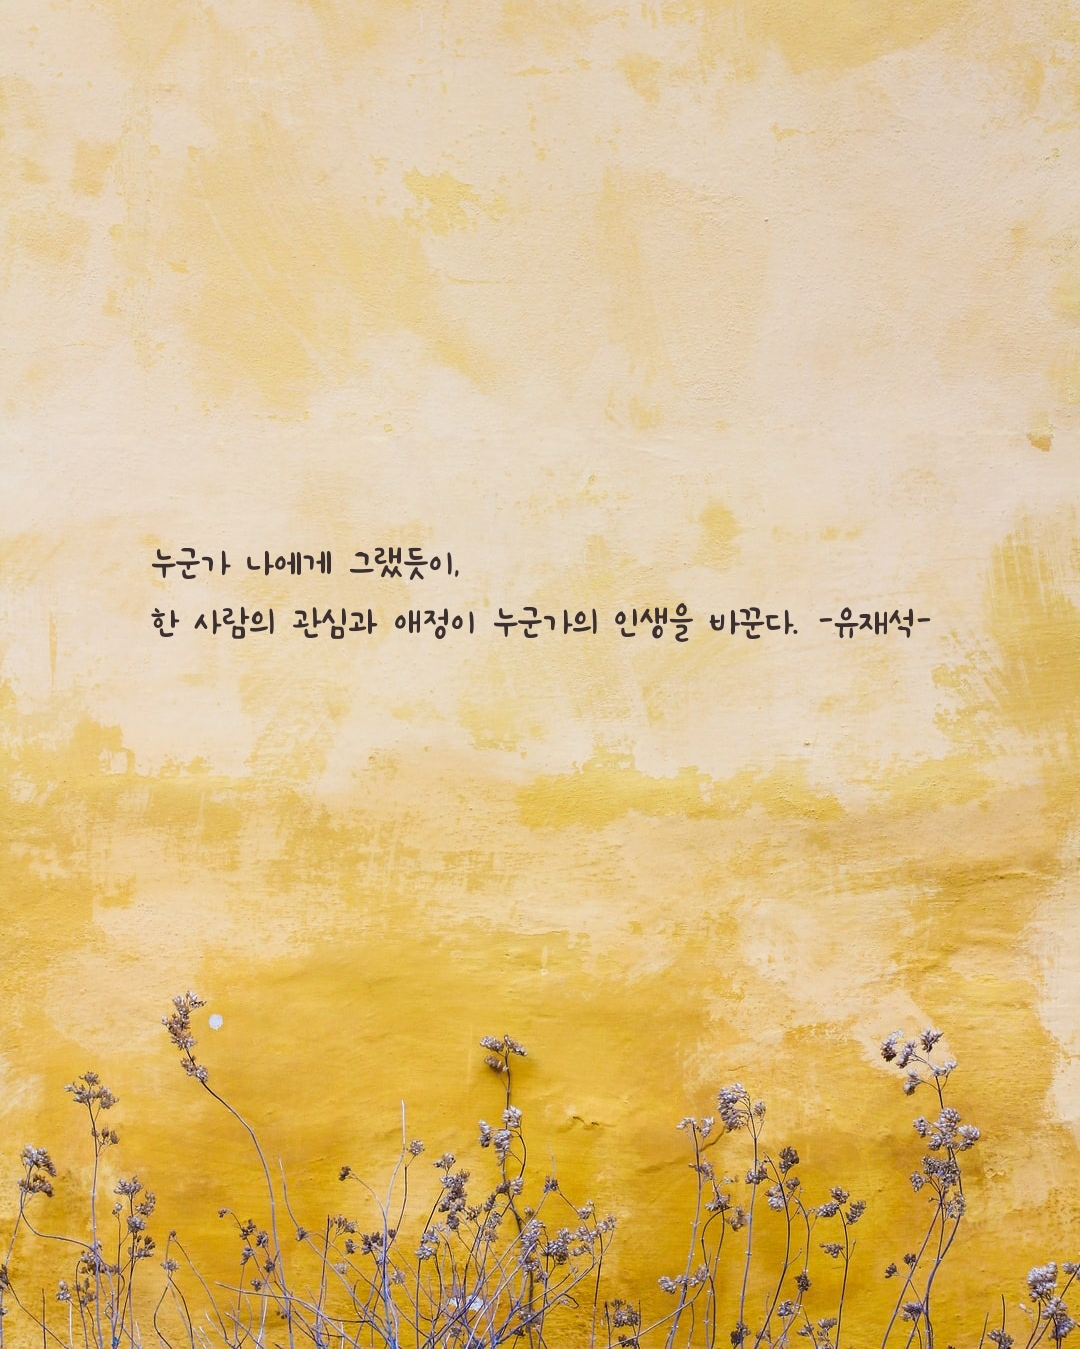 누군가 나에게 그랬듯이,
한 사람의 관심과 애정이 누군가의 인생을 바꾼다. -유재석-